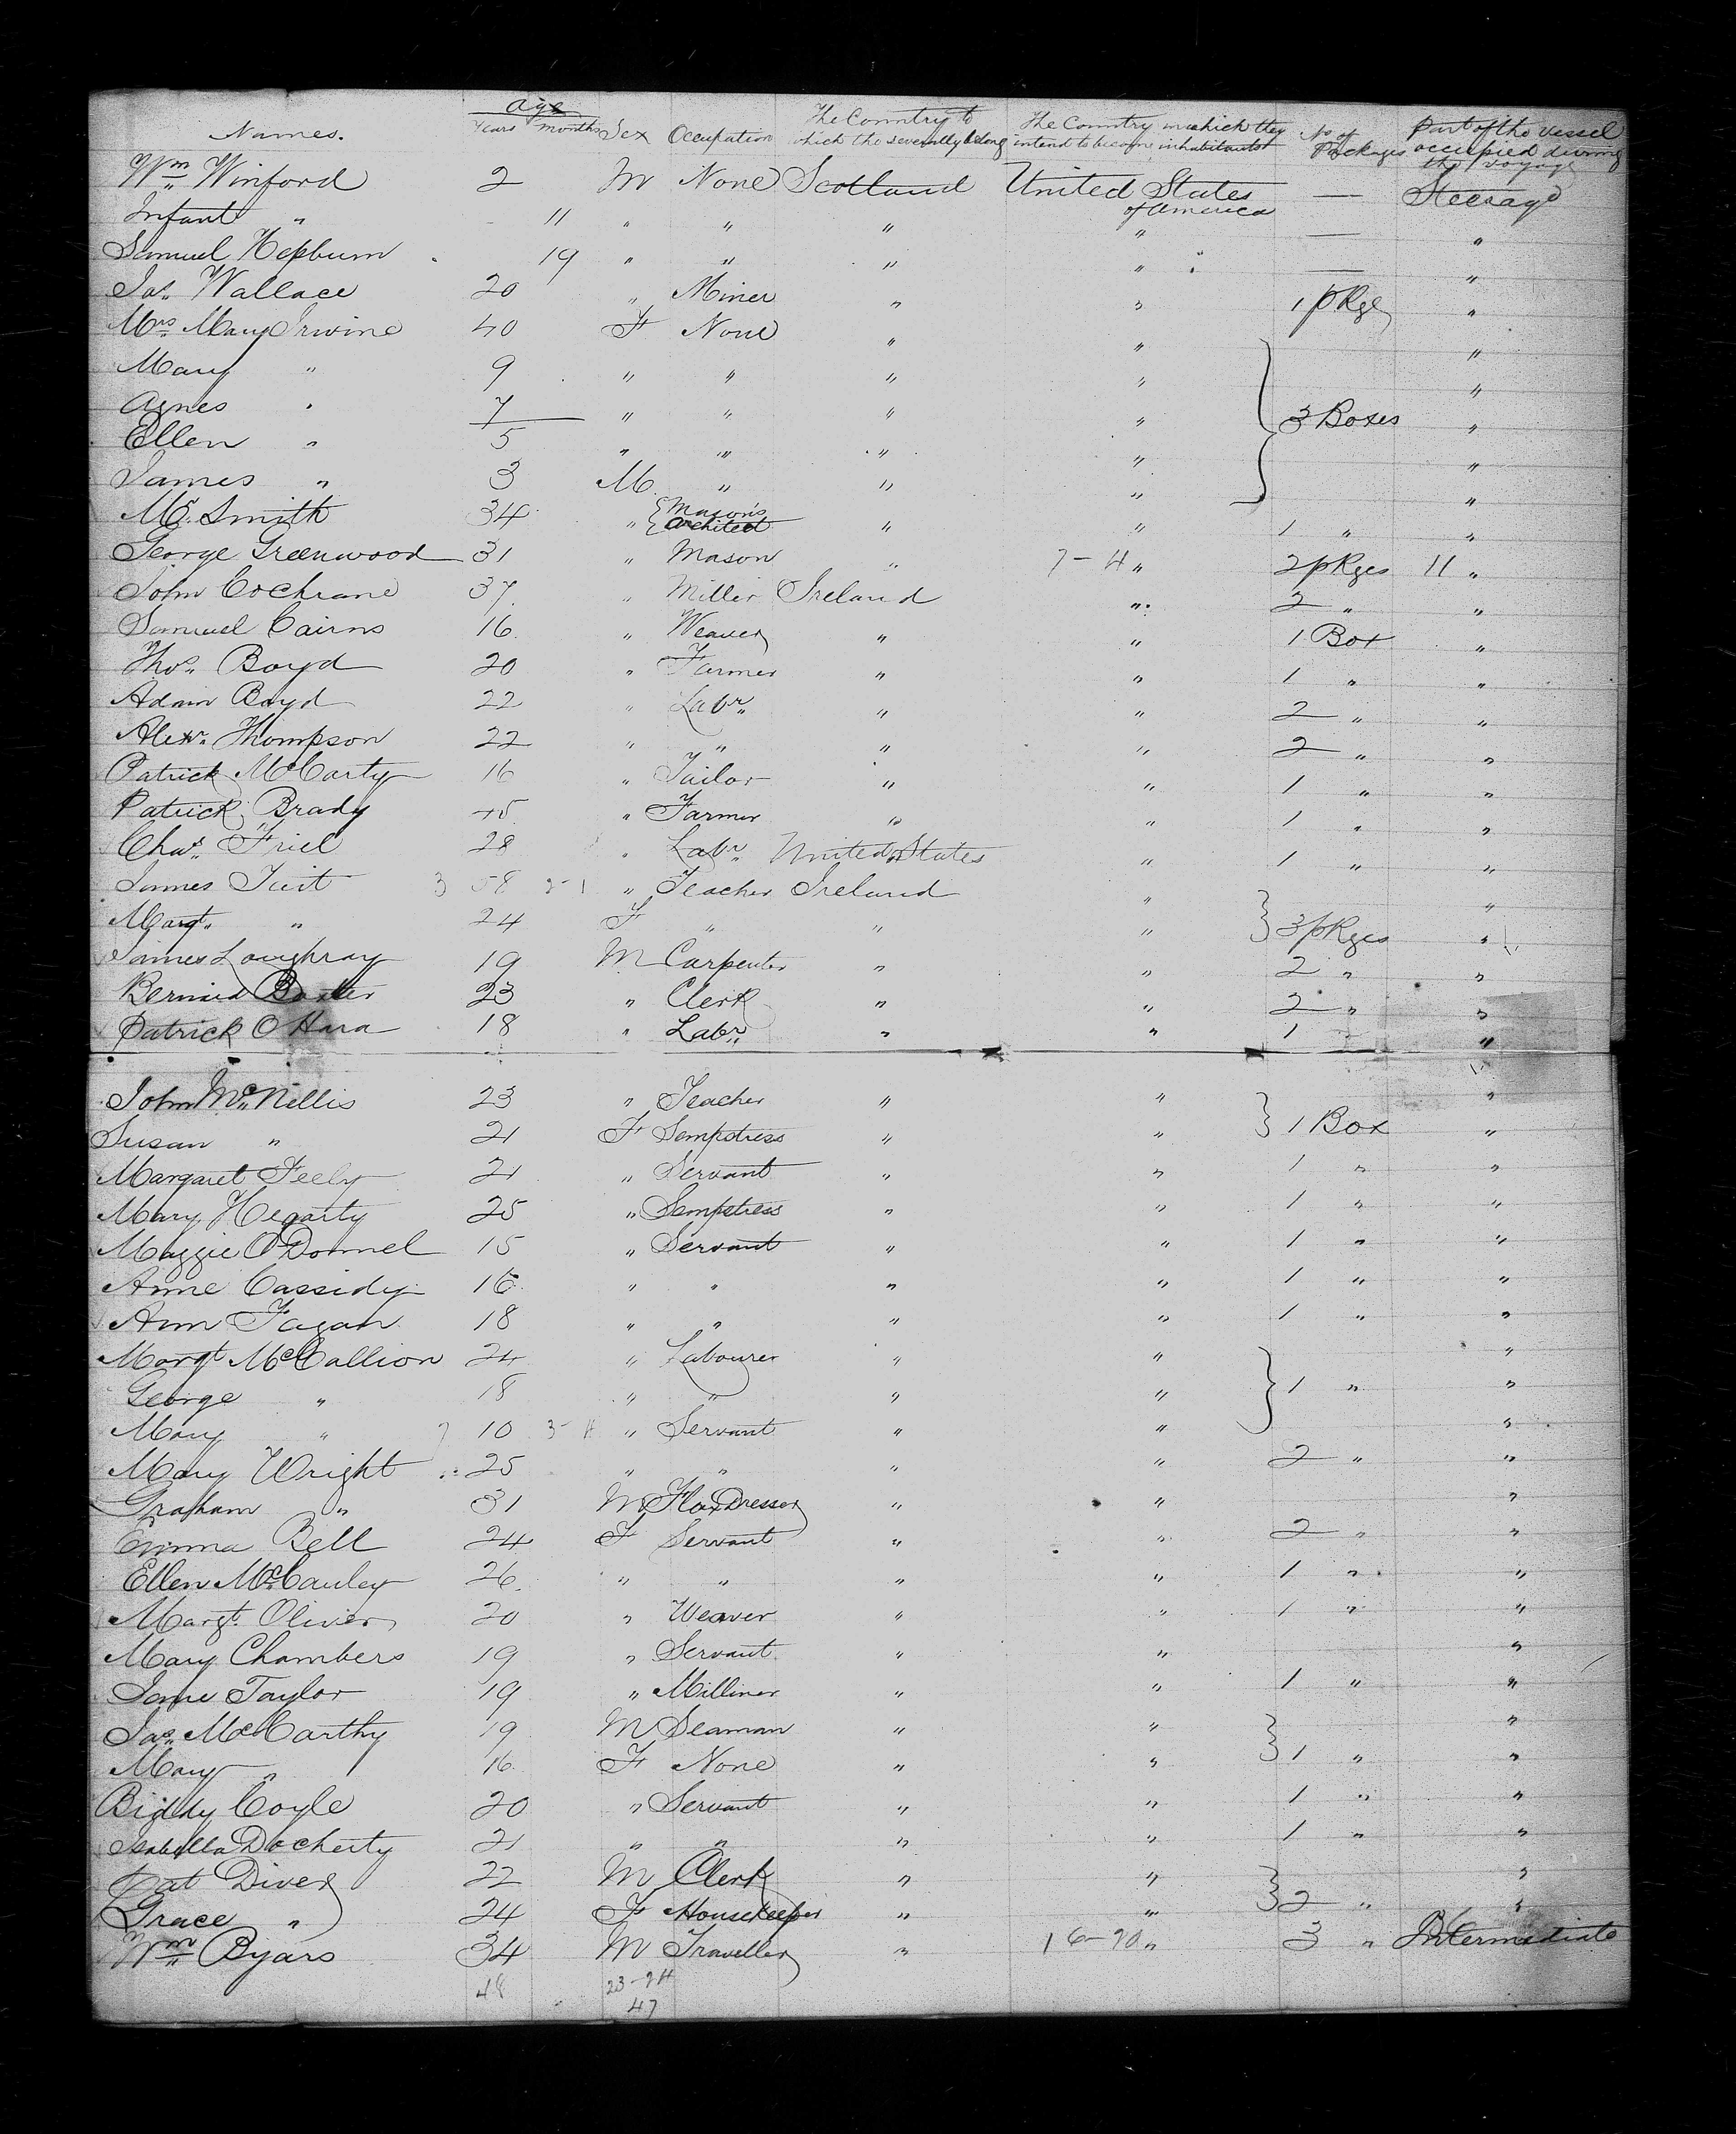 Names. Age Years months Sex Occupation The Country to which the severally belong The Country in which they intend to become inhabitants No of Packages Part of the vessel occupied during the voyage
Wm Winford 2 M None Scotland United States of America — Steerage
Infant " 11 " " " " — "
Samuel Hepburn 19 " " " " — "
Jas. Wallace 20 " Miner " " 1 pkge "
Mrs Mary Irwine 40 F None " " "
Mary " 9 " " " " "
Agnes " 7 " " " " 3 Boxes "
Ellen " 5 " " " " "
James " 3 M " " " "
Mr. Smith 34 " Mason's Architect " " 1 " "
George Greenwood 31 " Mason " 7-4 " 2 pkges 11 "
John Cochrane 37 " Miller Ireland " 2 " "
Samuel Cairns 16 " Weaver " " 1 Box "
Thos. Boyd 20 " Farmer " " 1 " "
Adam Boyd 22 " Labr. " " 2 " "
Alexr. Thompson 22 " " " " 2 " "
Patrick McCarty 16 " Tailor " " 1 " "
Patrick Brady 45 " Farmer " " 1 " "
Chas. Friel 28 " Labr. United States " 1 " "
James Tait 3 58 2-1 " Teacher Ireland " "
Margt. " 24 F " " " 3 pkges "
James Loughray 19 M Carpenter " " 2 " "
Bernard Baxter 23 " Clerk " " 2 " "
Patrick O Hara 18 " Labr. " " 1 "
John McNellis 23 " Teacher " " "
Susan " 21 F Sempstress " " 1 Box "
Margaret Feely 21 " Servant " " 1 " "
Mary Hegarty 25 " Sempstress " " 1 " "
Maggie O'Donnel 15 " Servant " " 1 " "
Anne Cassidy 16 " " " " 1 " "
Ann Fagan 18 " " " " 1 " "
Margt McCallion 24 " Labourer " " "
George " 18 " " " " 1 " "
Mary " 10 " Servant " " "
Mary Wright 25 " " " " 2 " "
Graham " 31 M Flax Dresser " " "
Emma Bell 24 F Servant " " 2 " "
Ellen McCauley 26 " " " " 1 " "
Margt. Oliver 20 " Weaver " " 1 " "
Mary Chambers 19 " Servant " " "
Jane Taylor 19 " Milliner " " 1 " "
Jas. McCarthy 19 M Seaman " " "
Mary " 16 F None " " 1 " "
Biddy Coyle 20 " Servant " " 1 " "
Isabella Docherty 21 " " " " 1 " "
Pat Diver 22 M Clerk " " "
Grace " 24 F Housekeeper " " 2 " "
Wm Byars 34 M Traveller " 16-90 " 3 " Intermediate
48 23-24
47